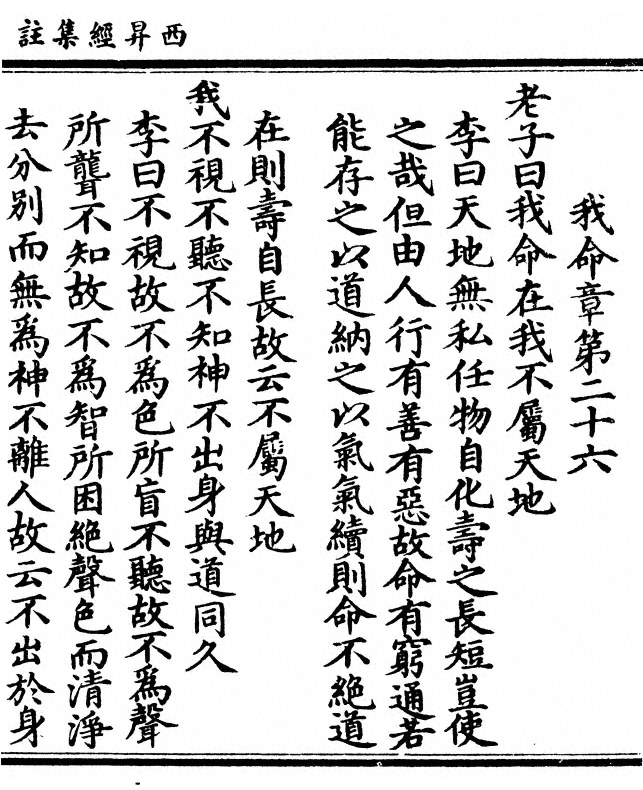 西昇經集註
我命章第二十六
老子曰我命在我不屬天地
李曰天地無私任物自化壽之長短豈使
之哉但由人行有善有惡故命有窮通若
能存之以道納之以氣氣續則命不絶道
在則壽自長故云不屬天地
我不視不聽不知神不出身與道同久
李曰不視故不爲色所盲不聽故不爲聲
所聾不知故不爲智所困絶聲色而清淨
去分别而無爲神不離人故云不出於身